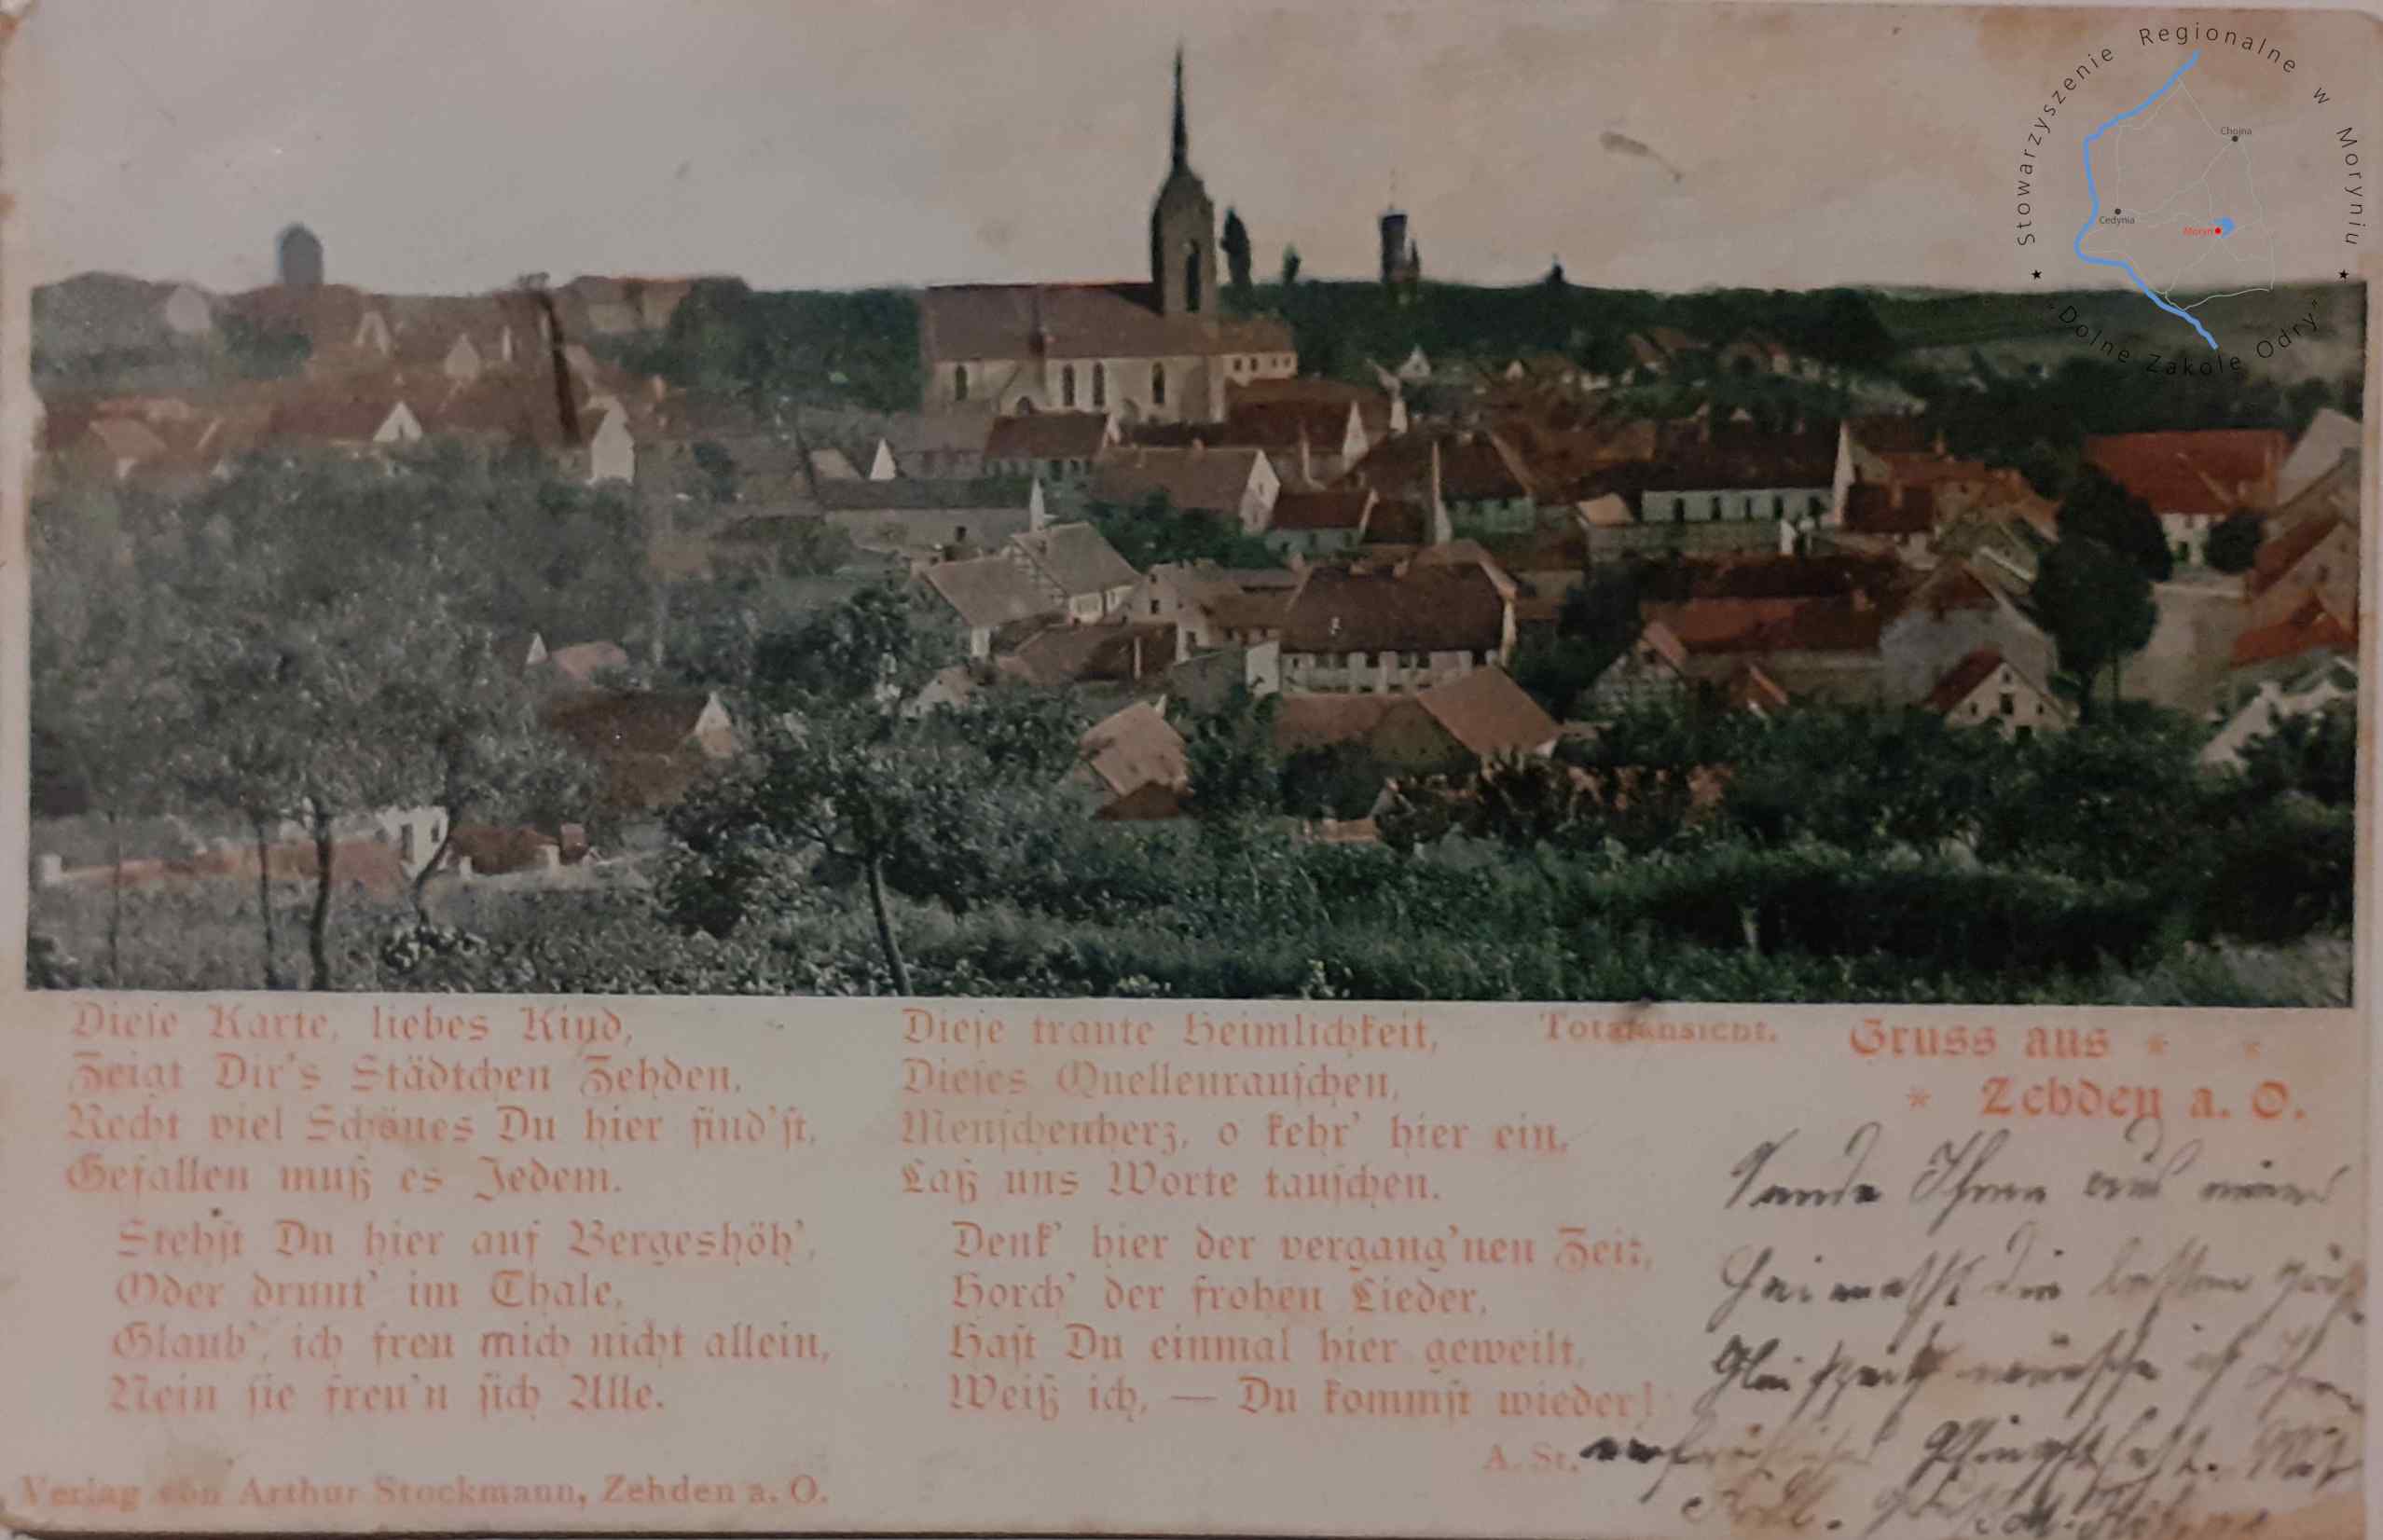 Stowarzyszenie Regionalne w Moryniu
"Dolne Zakole Odry"
Chojna
Cedynia
Moryń
Diese Karte, liebes Kind,
Zeigt Dir's Städtchen Zehden,
Recht viel Schönes Du hier find'st,
Gefallen muß es Jedem.
Stehst Du hier auf Bergeshöh',
Oder drunt' im Thale,
Glaub', ich freu mich nicht allein,
Nein sie freu'n sich Alle.
Verlag von Arthur Stockmann, Zehden a. O.
Diese traute Heimlichkeit,
Dieses Quellenrauschen,
Menschenherz, o kehr' hier ein,
Laß uns Worte tauschen.
Denk' hier der vergang'nen Zeit,
Horch' der frohen Lieder,
Hast Du einmal hier geweilt,
Weiß ich, — Du kommst wieder!
A. St.
Totalansicht.
Gruss aus
Zehden a. O.
Sende Ihnen aus meiner
Heimath die besten
Gleichzeitig wünsche ich Ihnen
Pfingstfest. Mit